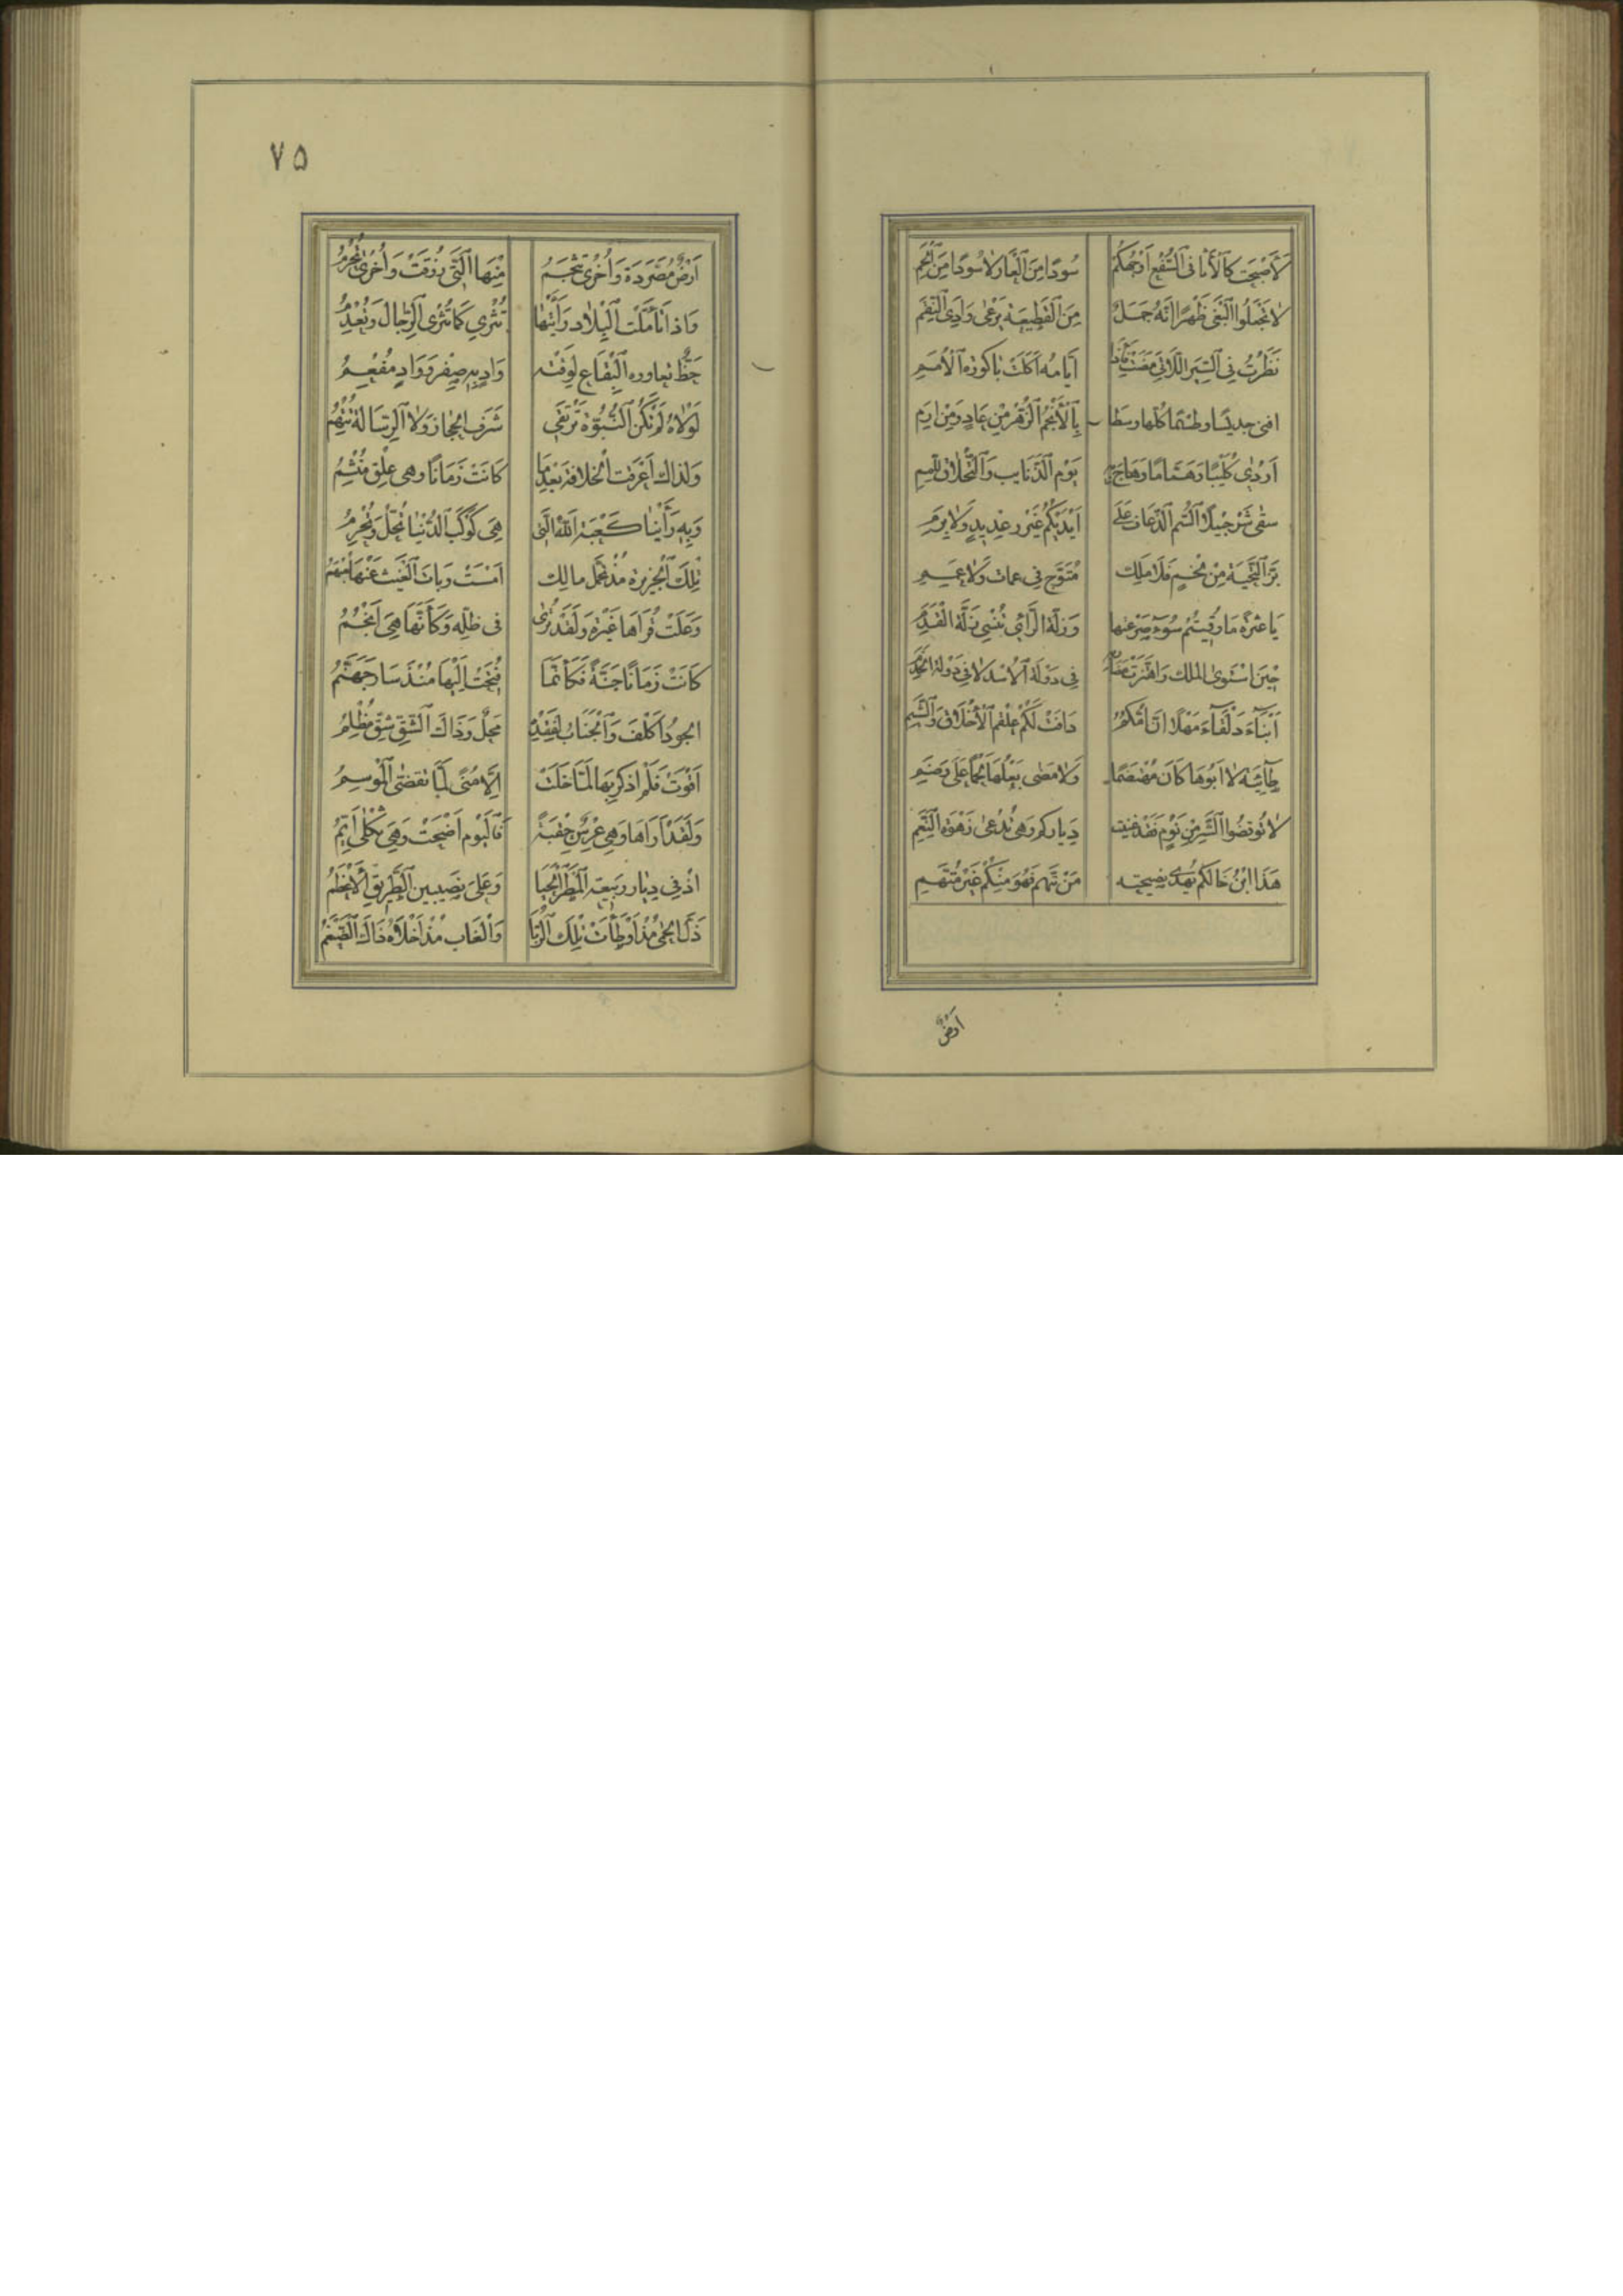 لَأَصْبَحَتْ كَالْأَثَافِي السُّفْعِ أَوْجُهُكُمْ سُودًا مِنَ الْعَارِ لَا سُودًا مِنَ الْحُمَمِ
لَا تَجْعَلُوا الْبَغْيَ ظَهْرًا إِنَّهُ جَمَلٌ مِنَ الْقَطِيعَةِ يَرْعَى وَادِيَ النِّقَمِ
نَظَرْتُ فِي السِّيَرِ اللَّاتِي مَضَتْ فَإِذَا أَيَّامُهُ أَكَلَتْ بَاكُورَةَ الْأُمَمِ
افنى جديسًا وطسمًا كلها وسطا بِالْأَنْجُمِ الزُّهْرِ مِنْ عَادٍ وَمِنْ إِرَمِ
أَرْدَى كُلَيْبًا وَهَمَّامًا وَهَاجَ بِهِ يَوْمَ الذَّنَايِبِ وَالتَّحْلَاقِ لِلِّمَمِ
سقى شُرَحْبِيلًا السُّمَّ الذُّعَافَ عَلَى أَيْدِيكُمُ غَيْرَ رِعْدِيدٍ وَلَا بَرَمِ
بَزَّ التَّحِيَّةَ مِنْ لَخْمٍ فَلَا مَلِكٌ مُتَوَّجٌ فِي عمامات وَلَا عَمِيمِ
يَا عَثْرَةً مَا وُقِيتُمْ سُوءَ مَصْرَعِهَا وَزَلَّةُ الرَّأْيِ تُنْسِي زَلَّةَ الْقَدَمِ
حِينَ اسْتَوَى الملك وَاهْتَزَّتْ مَضَارِبُهُ فِي دَوْلَةِ الْأُسْدِ لَا فِي دَوْلَةِ الْخَدَمِ
أَبْنَاءَ دَلْفَاءَ مَهْلًا إِنَّ أُمَّكُمُ دَافَتْ لَكُمْ عَلْقَمَ الْأَخْلَاقِ وَالشِّيَمِ
طَائِيَّةٌ لَا أَبُوهَا كَانَ مُهْتَضَمًا وَلَا مَضَى بَعْلُهَا لَحْمًا عَلَى وَضَمِ
لَا تُوقِظُوا الشَّرَّ مِنْ نَوْمٍ فَقَدْ غَنِيَتْ دِيَارُكُمْ وَهِيَ تُدْعَى زَهْوَةَ النِّعَمِ
هَذَا ابْنُ خَالِكُمُ يُهْدِي نَصِيحَتَهُ مَنْ يُتَّهَمْ فَهُوَ مِنْكُمْ غَيْرُ مُتَّهَمِ
أَرْضٌ
٧٥
أَرْضٌ مُصَرَّدَةٌ وَأُخْرَى تُثْجَمُ مِنْهَا الَّتِي رُزِقَتْ وَأُخْرَى تُحْرَمُ
وَإِذَا تَأَمَّلْتَ الْبِلَادَ رَأَيْتَهَا تُثْرِي كَمَا تُثْرِي الرِّجَالُ وَتُعْدِمُ
حَظٌّ تعاوره الْبِقَاعُ لِوَقْتِهِ وَادٍ بِهِ صِفْرٌ وَوَادٍ مُفْعَمُ
لَوْلَاهُ لَمْ تَكُنِ النُّبُوَّةُ تَرْتَقِي شَرَفَ الْحِجَازِ وَلَا الرِّسَالَةُ تُتْهِمُ
وَلِذَاكَ أَعْرَقَتِ الْخِلَافَةُ بَعْدَمَا كَانَتْ زَمَانًا وهي عِلْقٌ مُشْئِمُ
وَبِهِ رَأَيْنَا كَعْبَةَ اللَّهِ الَّتِي هِيَ كَوْكَبُ الدُّنْيَا تُحِلُّ وَتُحْرِمُ
تِلْكَ الْجَزِيرَةُ مُذْ تَحَمَّلَ مَالِكٌ أَمْسَتْ وَبَابُ الْغَيْثِ عَنْهَا مُبْهَمُ
وَعَلَتْ قُرَاهَا غَبْرَةٌ وَلَقَدْ تُرَى فِي ظِلِّهِ وَكَأَنَّهَا هِيَ أَنْجُمُ
كَانَتْ زَمَانًا جَنَّةً فَكَأَنَّمَا فُتِحَتْ إِلَيْهَا مُنْذُ سَارَ جَهَنَّمُ
الجود أَكْلَفُ وَالْجَنَابُ لِفَقْدِهِ مَحْلٌ وَذَاكَ الشِّقُّ شِقٌّ مُظْلِمُ
أَقْوَتْ فَلَمْ أَذْكُرْ بِهَا لَمَّا خَلَتْ إِلَّا مِنًى لَمَّا تَقَضَّى الْمَوْسِمُ
وَلَقَدْ أَرَاهَا وَهِيَ عِرْسٌ حِقْبَةً فَالْيَوْمَ أَضْحَتْ وَهِيَ ثَكْلَى أَيِّمُ
إِذْ فِي دِيَارِ رَبِيعَةَ الْمَطَرُ الْحَيَا وَعَلَى نَصِيبِينَ الطَّرِيقُ الْأَعْظَمُ
ذَلَّ الْحِمَى مُذْ أُوطِئَتْ تِلْكَ الرُّبَا وَالْغَابُ مُذْ أَخْلَاهُ ذَاكَ الضَّيْغَمُ